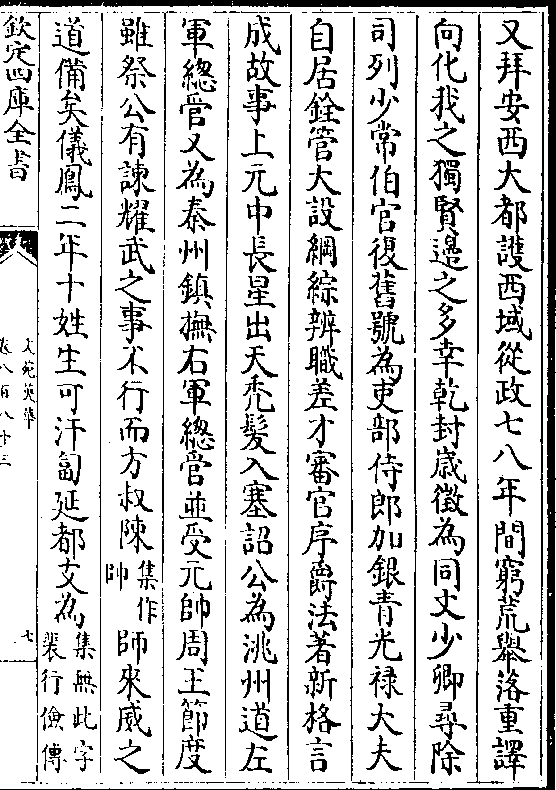 又拜安西大都護西域從政七八年間窮荒舉落重譯
向化我之獨賢邊之多幸乾封歲徵為同文少卿尋除
司列少常伯官復舊號為吏部侍郎加銀青光禄大夫
自居銓管大設綱綜辨職差才審官序爵法著新格言
成故事上元中長星出天禿髮入塞詔公為洮州道左
軍總管又為秦州鎮撫右軍總管並受元帥周王節度
雖祭公有諫耀武之事不行而方叔陳集作帥師來威之
道備矣儀鳳二年十姓生可汗匐延都支為集無此字裴行儉傳
欽定四庫全書
文苑英華
卷八百八十三
七